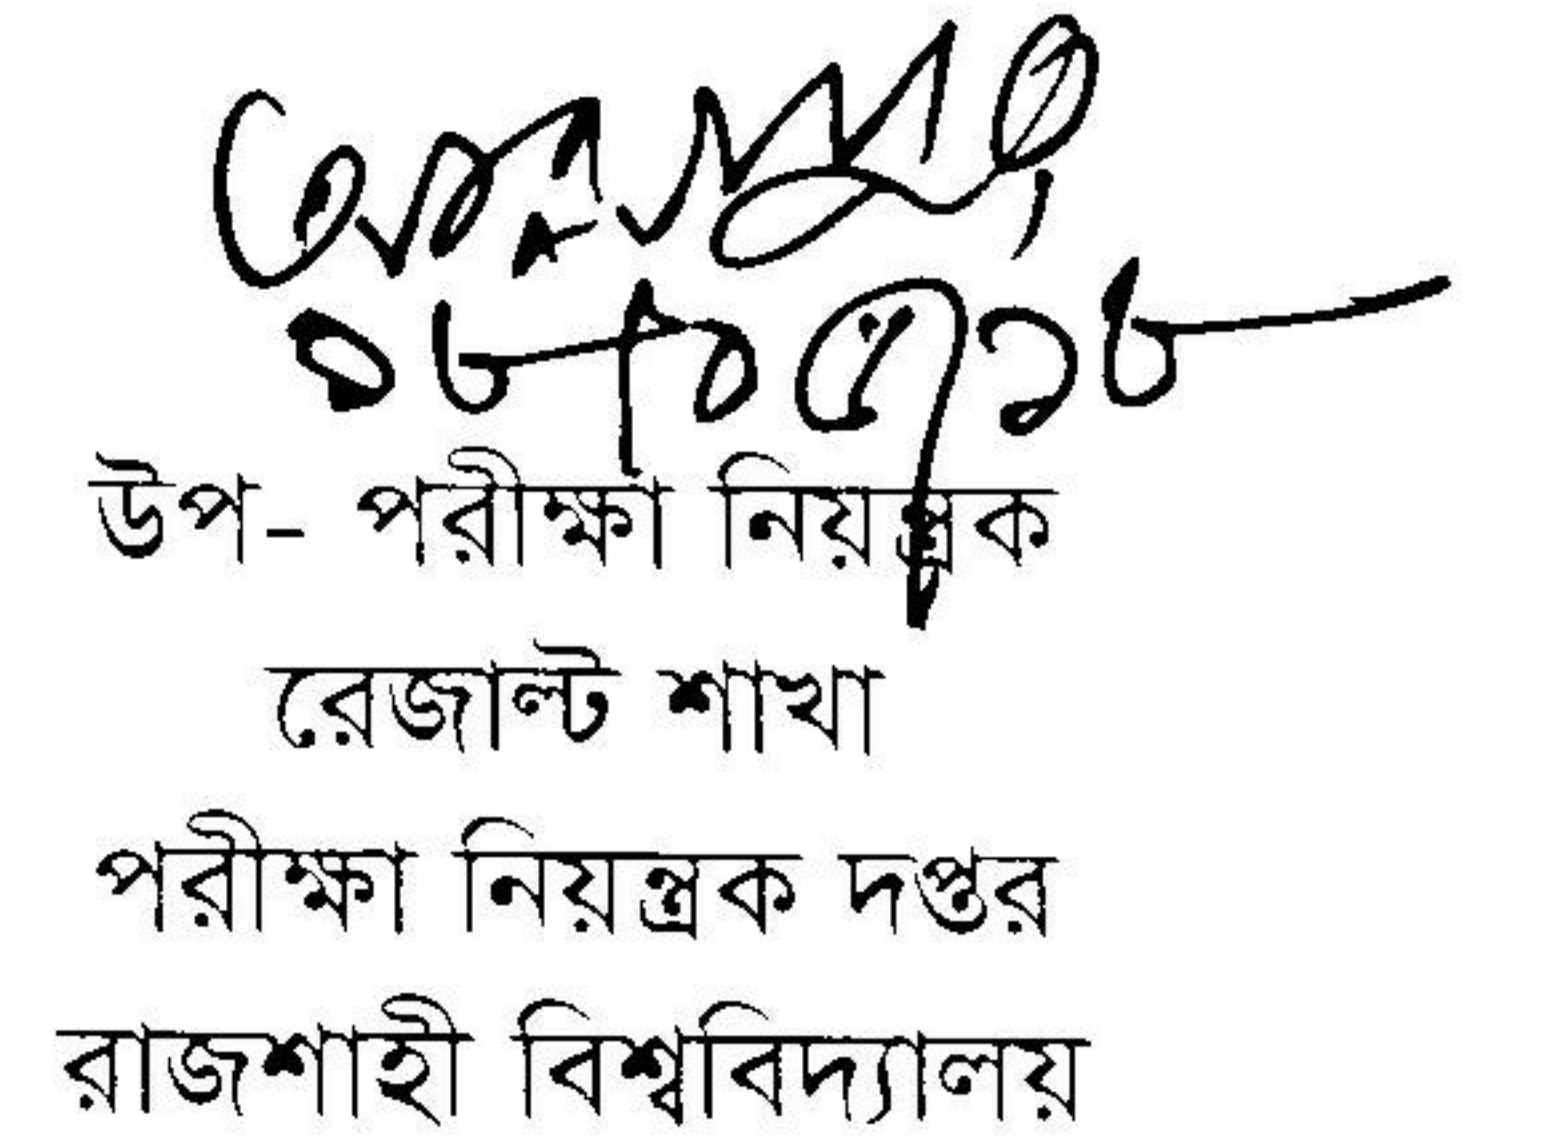 ০৮/০৫/১৮
উপ- পরীক্ষা নিয়ন্ত্রক
রেজাল্ট শাখা
পরীক্ষা নিয়ন্ত্রক দপ্তর
রাজশাহী বিশ্ববিদ্যালয়